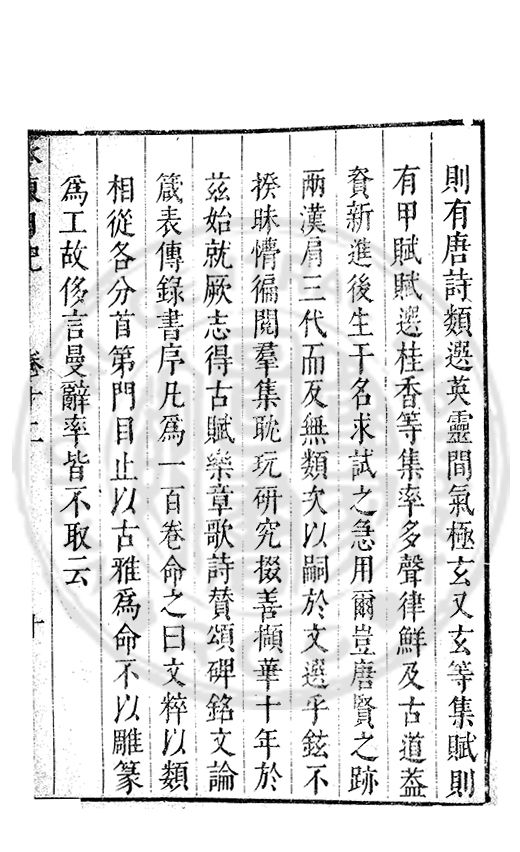 則有唐詩類選英靈間氣極玄又玄等集賦則
有甲賦賦選桂香等集率多聲律鮮及古道蓋
資新進後生干名求試之急用爾豈唐賢之跡
兩漢肩三代而反無類次以嗣於文選乎鉉不
揆昧懵徧閱羣集耽玩研究掇善擷華十年於
茲始就厥志得古賦樂章歌詩贊頌碑銘文論
箴表傳錄書序凡爲一百卷命之曰文粹以類
相從各分首第門目止以古雅爲命不以雕篆
爲工故侈言曼辭率皆不取云
卷十二
十